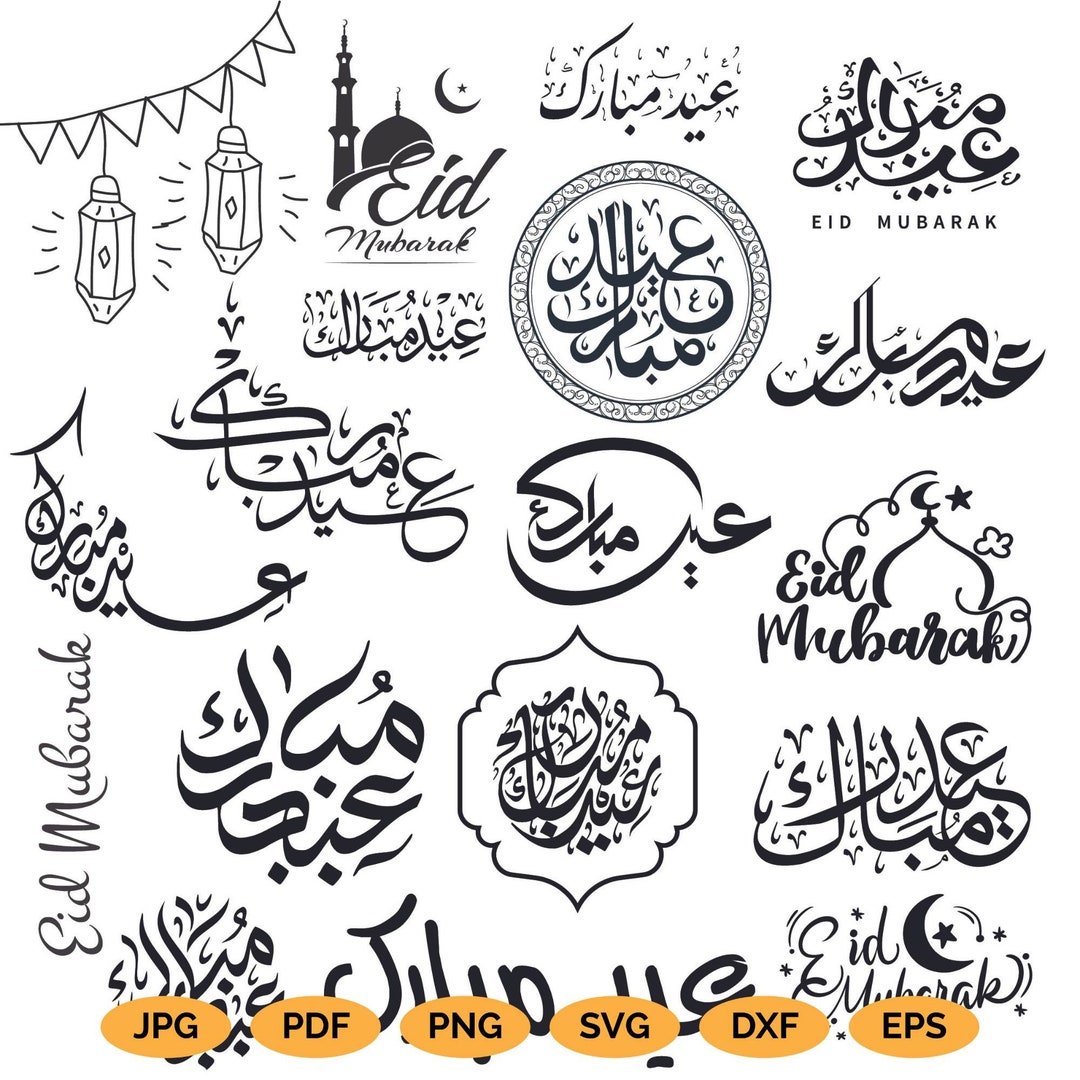 Eid
Mubarak
عيد مبارك
عيد مبارك
EID MUBARAK
عيد مبارك
عيد مبارك
عيد مبارك
عيد مبارك
عيد مبارك
عيد مبارك
Eid
Mubarak
Eid Mubarak
عيد مبارك
عيد مبارك
عيد مبارك
عيد مبارك
عيد مبارك
Eid
Mubarak
JPG
PDF
PNG
SVG
DXF
EPS